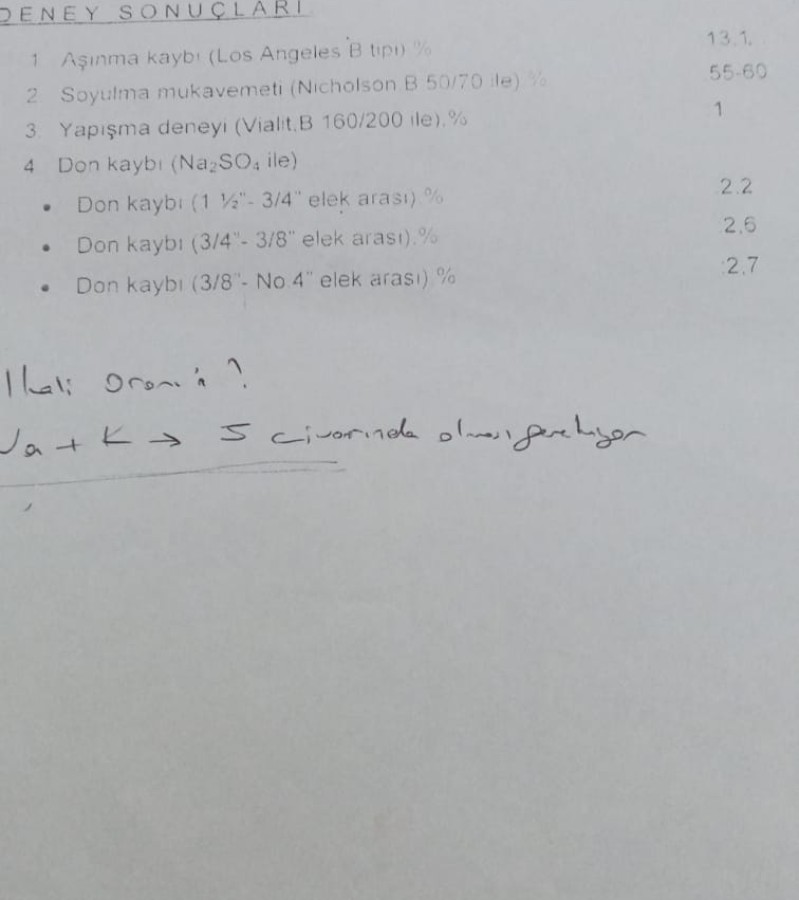 DENEY SONUÇLARI
1 Aşınma kaybı (Los Angeles B tipi) % 13.1.
2 Soyulma mukavemeti (Nicholson.B 50/70 ile) % 55-60
3 Yapışma deneyi (Vialit.B 160/200 ile).% 1
4 Don kaybı (Na₂SO₄ ile)
• Don kaybı (1 ½"- 3/4" elek arası).% 2.2
• Don kaybı (3/4"- 3/8" elek arası).% 2,6
• Don kaybı (3/8"- No.4" elek arası).% 2,7
?
a + K → 5 civarında olması gerekiyor